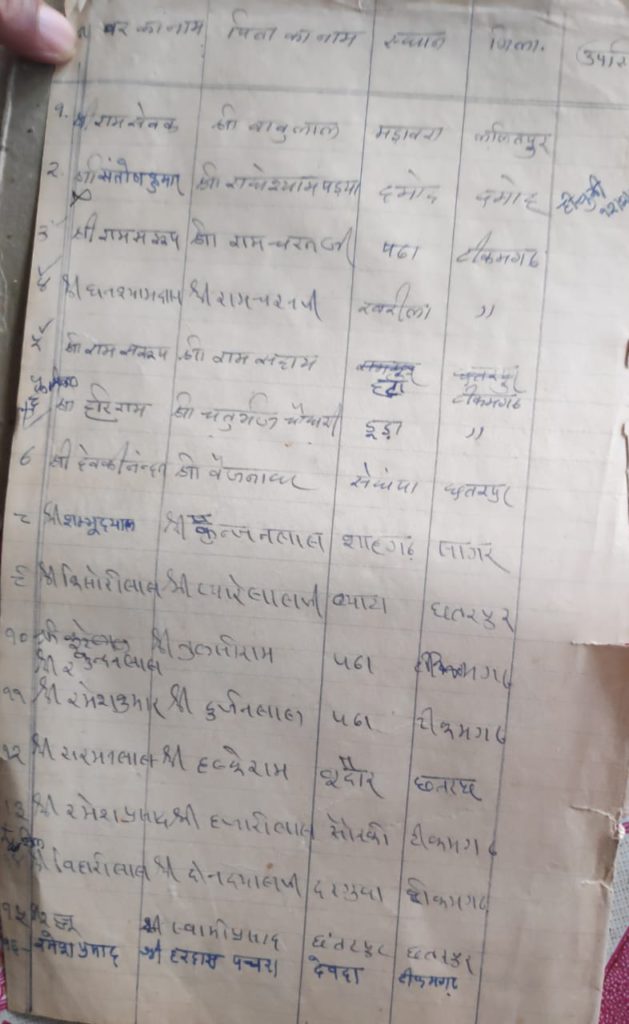 वर का नाम पिता का नाम स्थान जिला.
१. श्री रामसेवक श्री बाबुलाल मडावरा ललितपुर
२. श्री संतोषकुमार श्री राधेश्याम दमोह दमोह
३ श्री रामसरूप श्री रामचरनजी पठा टीकमगढ
४ श्री घनश्यामदास श्री रामचरनजी खरीला "
५ श्री रामसरूप श्री रामसहाय हटा टीकमगढ
श्री हरिराम श्री चतुर्भुज चौधरी डूडा "
७ श्री देवकीनन्दन श्री वैजनाथ छतरपुर
८ श्री शम्भूदयाल श्री कुन्जनलाल शाहगढ़ सागर
९ श्री किसोरीलाल श्री प्यारेलालजी छतरपुर
१० श्री कुन्दनलाल श्री तुलसीराम पठा टीकमगढ
११ श्री रमेशकुमार श्री दुर्जनलाल पठा टीकमगढ
१२ श्री सरमनलाल श्री हल्केराम छतरपुर
१३ श्री रमेशप्रसाद श्री हजारीलाल टीकमगढ
श्री बिहारीलाल श्री दीनदयालजी दरगुवा टीकमगढ
१५ श्री स्वामीप्रसाद छतरपुर छतरपुर
१६- रमेशप्रसाद श्री हरदास देवदा टीकमगढ़